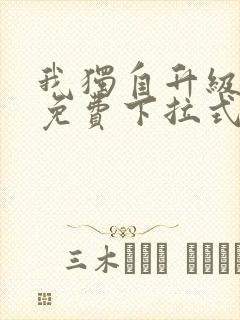 我獨自升級
免費下拉式
三木